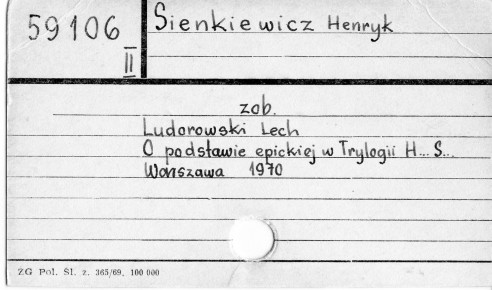 59106
II
Sienkiewicz Henryk
zob.
Ludorowski Lech
O podstawie epickiej w Trylogii H... S...
Warszawa 1970
ZG Pol. Śl. z. 365/69, 100 000